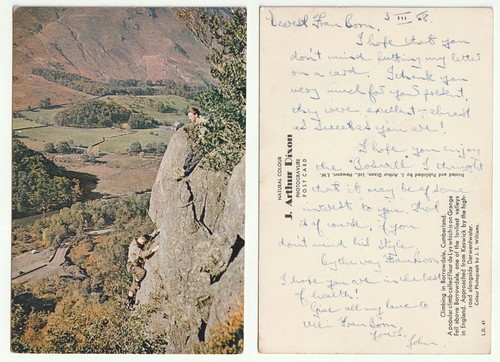 Dearest Fran Boon,
3 III 68.
I hope that you
don't mind putting my letter
on a card. I thank you
very much for your present,
they were excellent - almost
as sweet as you are!
I hope you enjoy
the Boswell. I thought
that it may be of some
interest to you. That is
of course if you
don't mind his style.
By the way Franboon
I hope you are in the best
of health!
Give all my love to
Fran Boon
Yours,
John
NATURAL COLOUR
J. Arthur Dixon
PHOTOGRAVURE
POST CARD
Printed and Published by J. Arthur Dixon, Ltd., Newport, I.W.
Climbing in Borrowdale, Cumberland.
A popular climb called Fleur de Lys which is on Grange
Fell above Borrowdale, one of the loveliest valleys
in England. Approached from Keswick by the high-
road alongside Derwentwater.
Colour Photograph by J. L. Williams.
L.D. 41